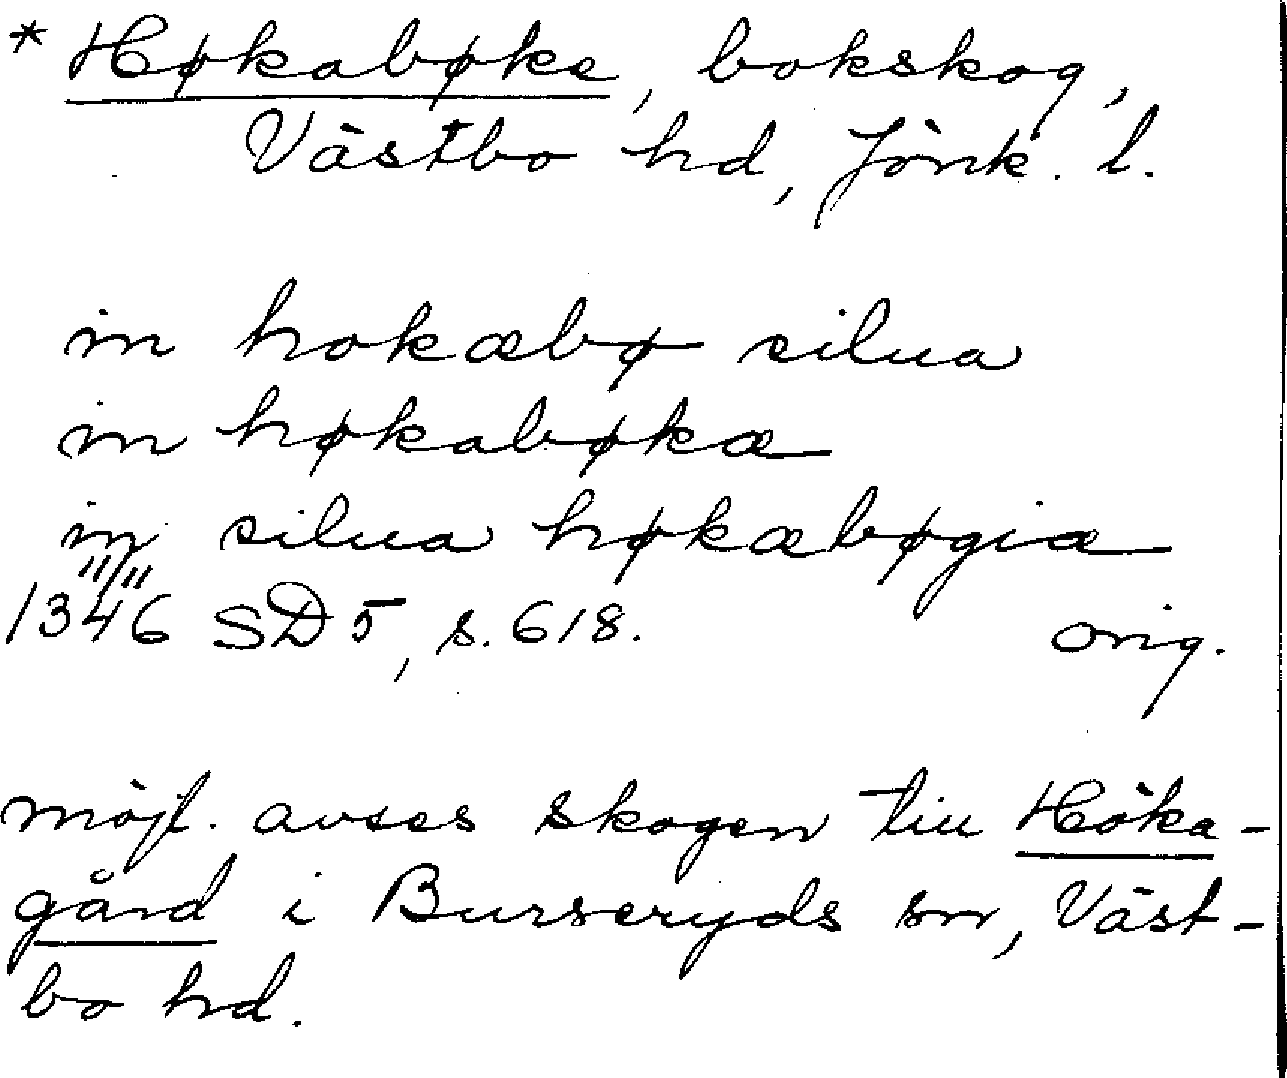 * Høkabøke, bokskog,
Västbo hd, Jönk. l.
in hokæbø silua
in høkabøkæ
in silua høkæbøgiæ
11/11
1346 SD 5, s. 618. orig.
möjl. avses skogen till Höka-
gård i Burseryds sn, Väst-
bo hd.